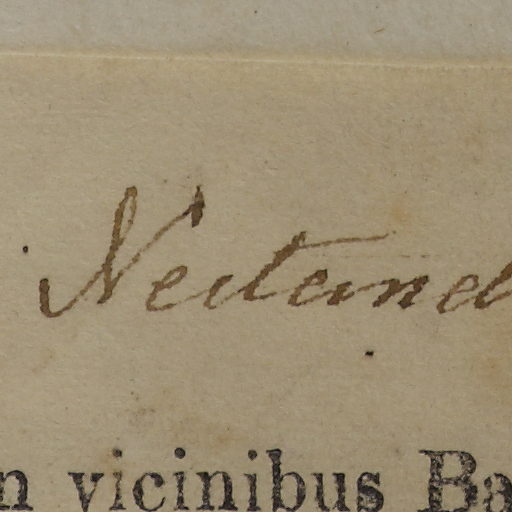 Nectand
n vicinibus Ba